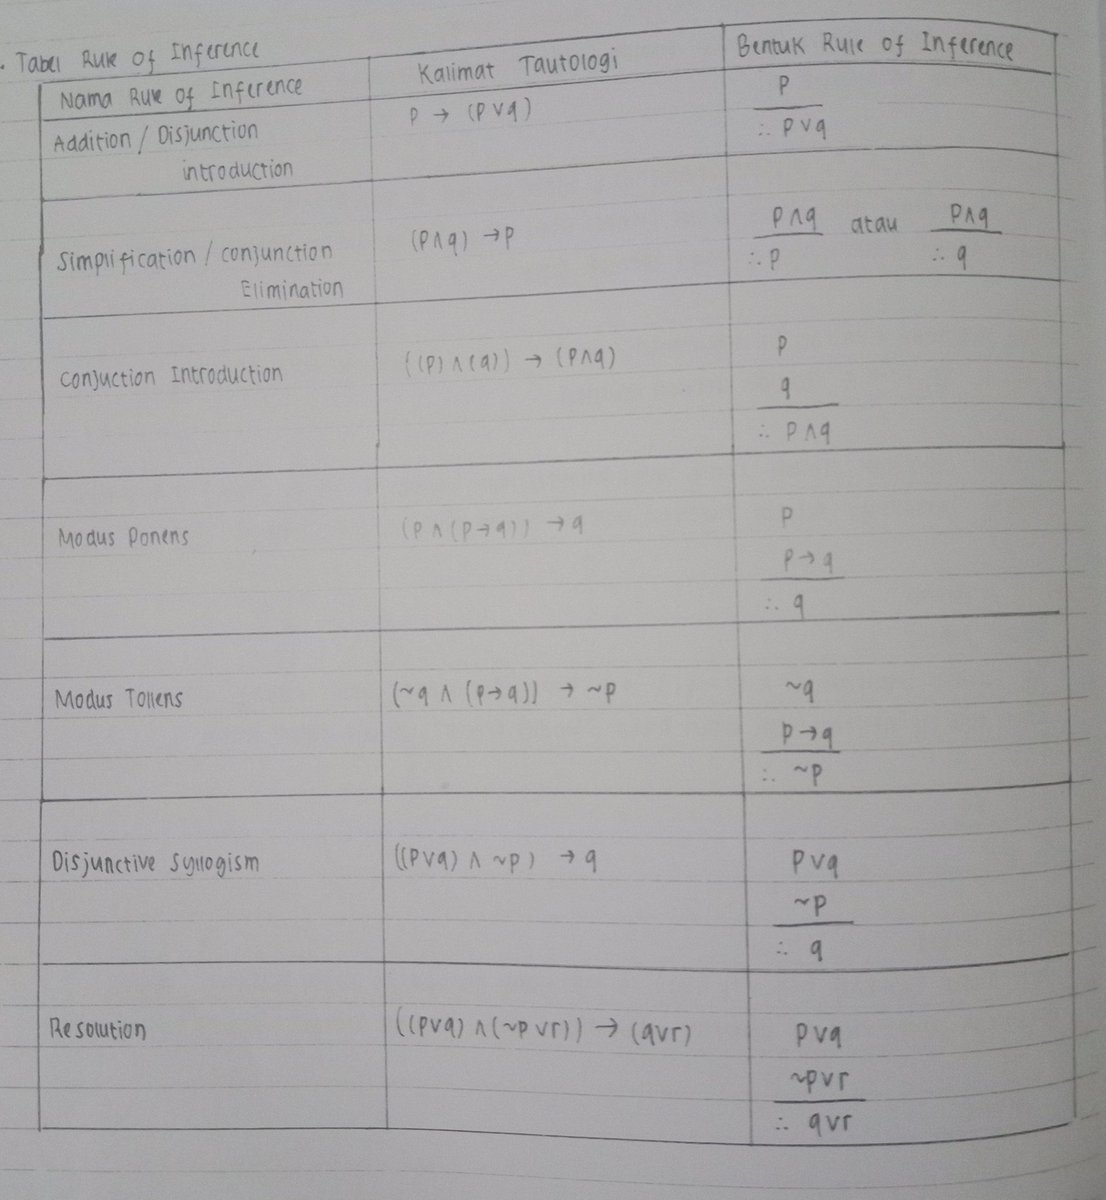 . Tabel Rule Of Inference
Nama Rule Of Inference
Kalimat Tautologi
Bentuk Rule of Inference
Addition / Disjunction
introduction
p → (p ∨ q)
p
∴ p ∨ q
Simplification / conjunction
Elimination
(p ∧ q) → p
p ∧ q atau p ∧ q
∴ p ∴ q
Conjuction Introduction
((p) ∧ (q)) → (p ∧ q)
p
q
∴ p ∧ q
Modus Ponens
(p ∧ (p → q)) → q
p
p → q
∴ q
Modus Tollens
(~q ∧ (p → q)) → ~p
~q
p → q
∴ ~p
Disjunctive Syllogism
((p ∨ q) ∧ ~p) → q
p ∨ q
~p
∴ q
Resolution
((p ∨ q) ∧ (~p ∨ r)) → (q ∨ r)
p ∨ q
~p ∨ r
∴ q ∨ r